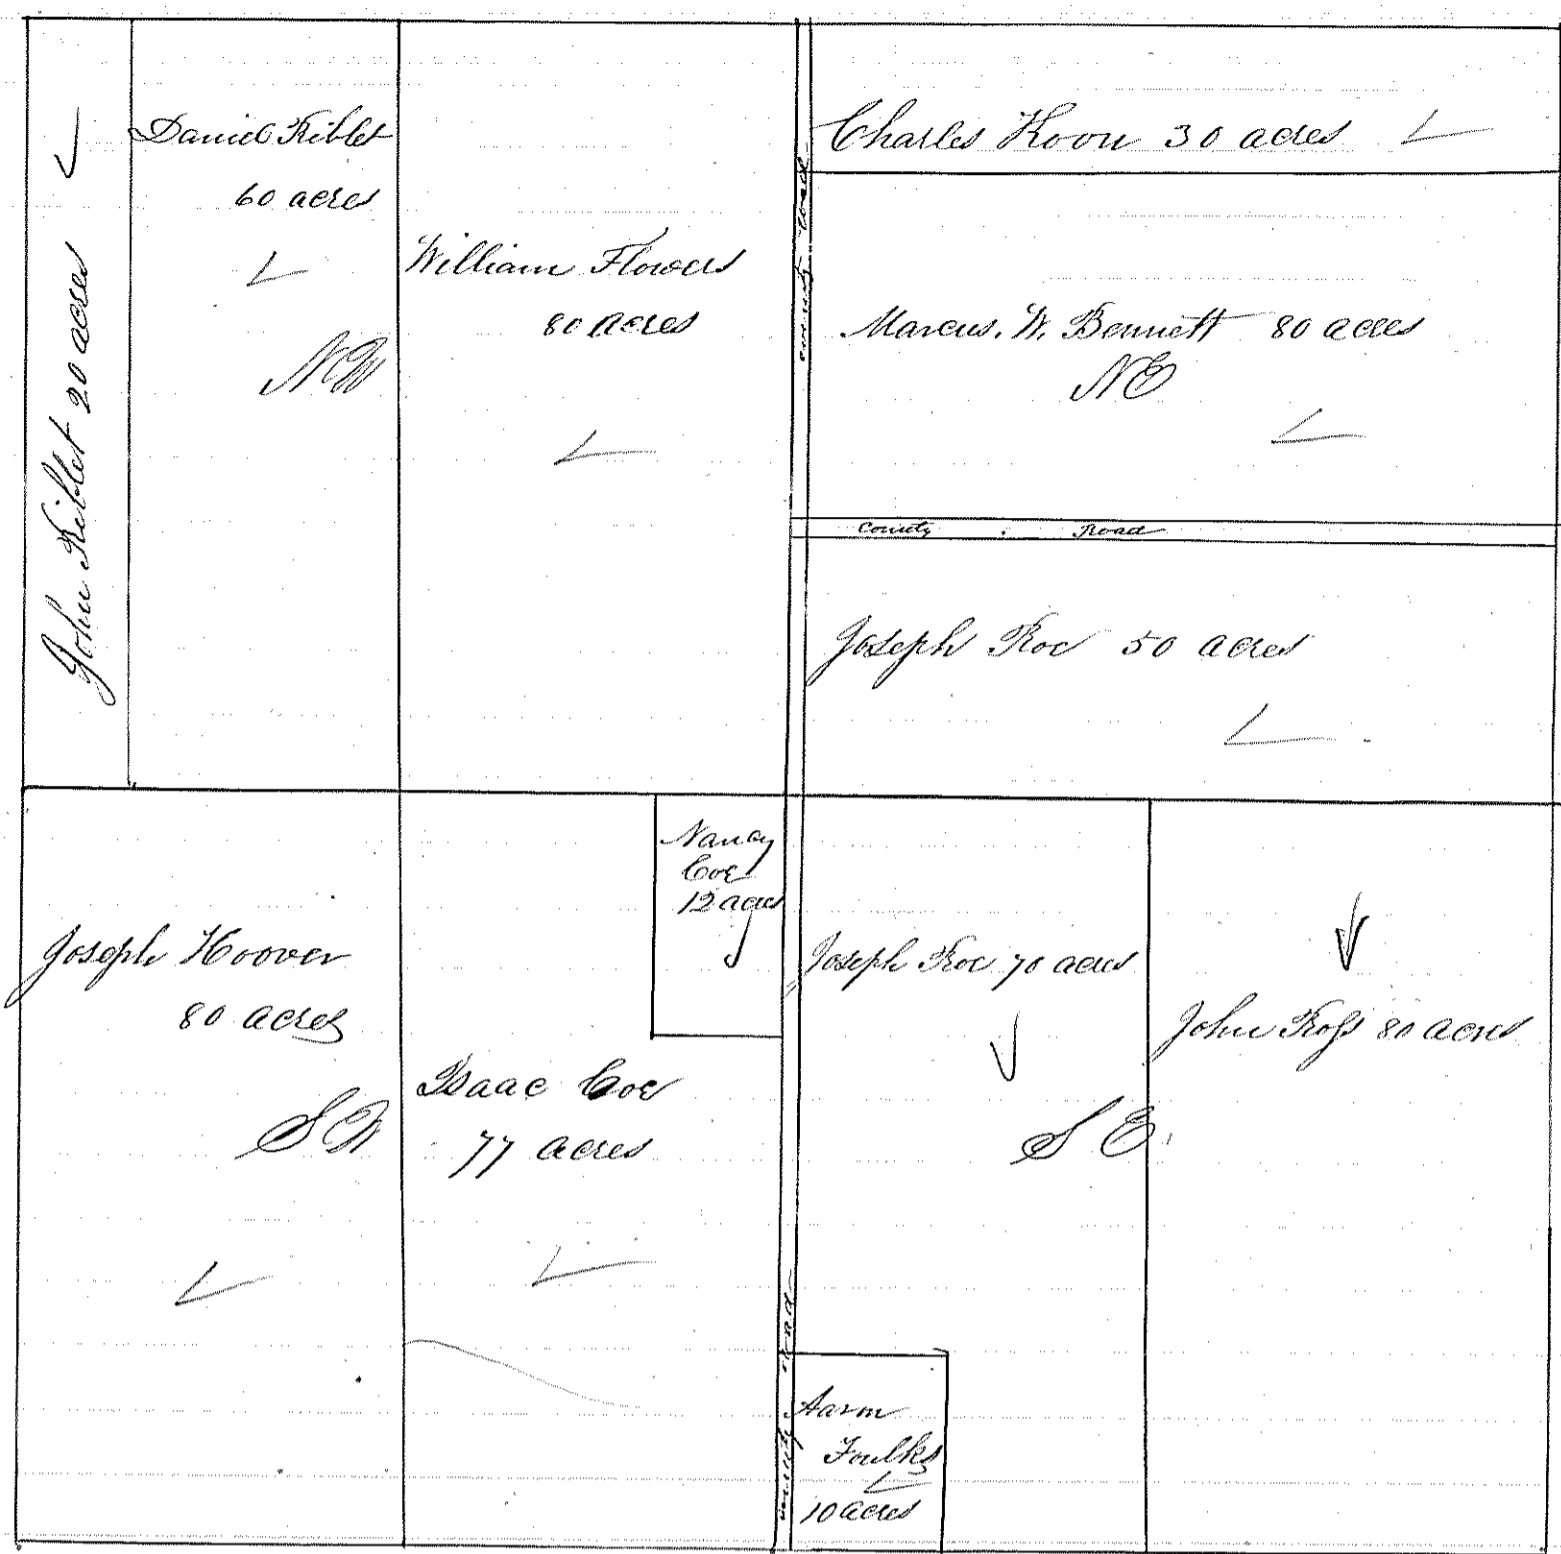 John Riblet 20 acres
Daniel Riblet
60 acres
NW
William Flowers
80 acres
County Road
Charles Koon 30 acres
Marcus. W. Bennett 80 acres
NE
County Road
Joseph Roe 50 acres
Joseph Hoover
80 acres
SW
Nancy
Coe
12 acres
Isaac Coe
77 acres
County Road
Joseph Roe 70 acres
SE.
John Ross 80 acres
Aaron
Foulks
10 acres